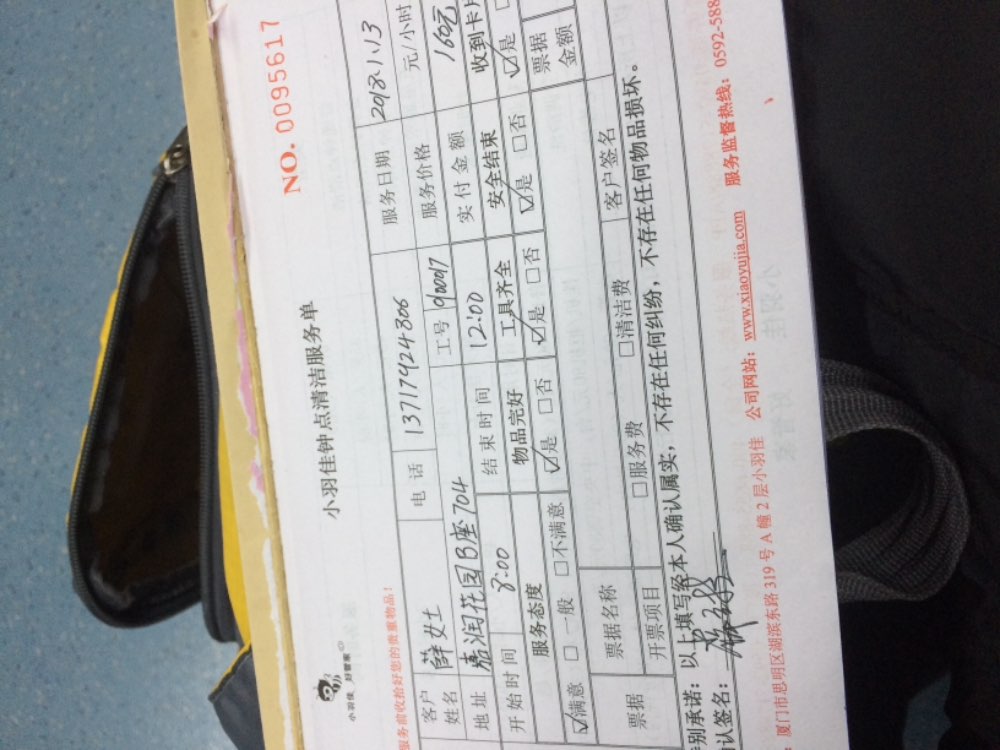 NO. 0095617
小羽佳钟点清洁服务单
小羽佳 好管家
服务前收拾好您的贵重物品!
客户姓名 薛女士 电话 13717424306 服务日期 2018.1.13
地址 嘉润花园B座704 工号 服务价格 元/小时
开始时间 8:00 结束时间 12:00 实付金额 160元
服务态度 物品完好 工具齐全 安全结束 收到卡片
☑满意 □一般 □不满意 ☑是 □否 ☑是 □否 ☑是 □否 ☑是
票据 票据名称 票据金额
开票项目 □服务费 □清洁费 客户签名
别承诺:以上填写经本人确认属实,不存在任何纠纷,不存在任何物品损坏。
认签名:
厦门市思明区湖滨东路 319 号 A 幢 2 层小羽佳 公司网站:www.xiaoyujia.com 服务监督热线:0592-588